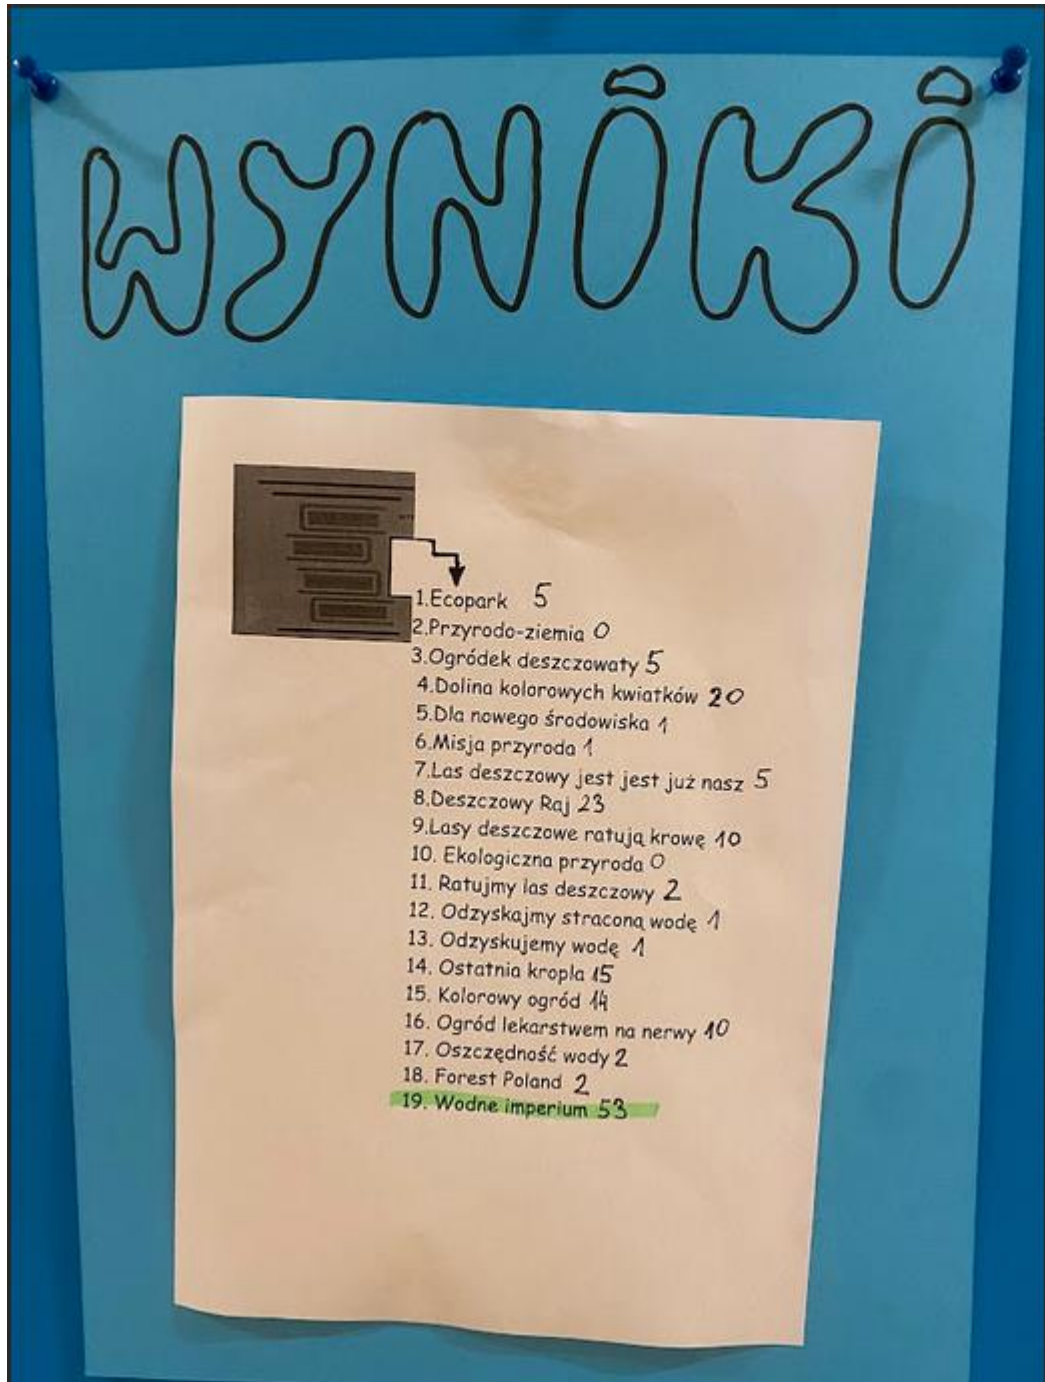 WYNIKI
1.Ecopark 5
2.Przyrodo-ziemia 0
3.Ogródek deszczowaty 5
4.Dolina kolorowych kwiatków 20
5.Dla nowego środowiska 1
6.Misja przyroda 1
7.Las deszczowy jest jest już nasz 5
8.Deszczowy Raj 23
9.Lasy deszczowe ratują krowę 10
10. Ekologiczna przyroda 0
11. Ratujmy las deszczowy 2
12. Odzyskajmy straconą wodę 1
13. Odzyskujemy wodę 1
14. Ostatnia kropla 15
15. Kolorowy ogród 14
16. Ogród lekarstwem na nerwy 10
17. Oszczędność wody 2
18. Forest Poland 2
19. Wodne imperium 53